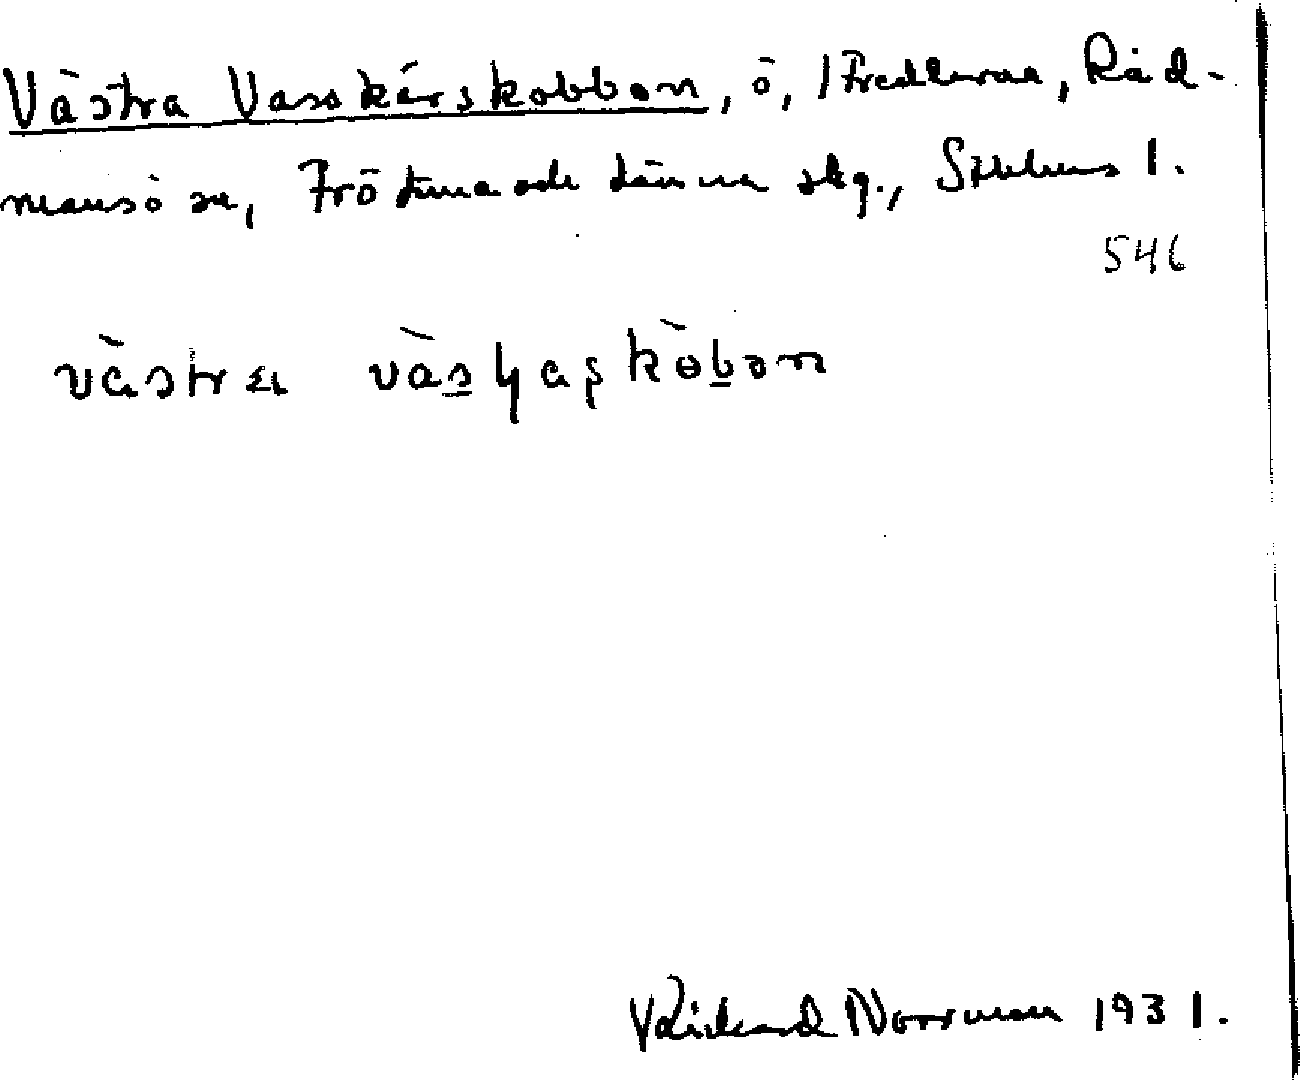 Västra Vasskärskobben, ö, i Fredlarna, Råd-
mansö sn, Frötuna och Länna skg., Sthlms l.
546
västra
Rickard Norrman 1931.